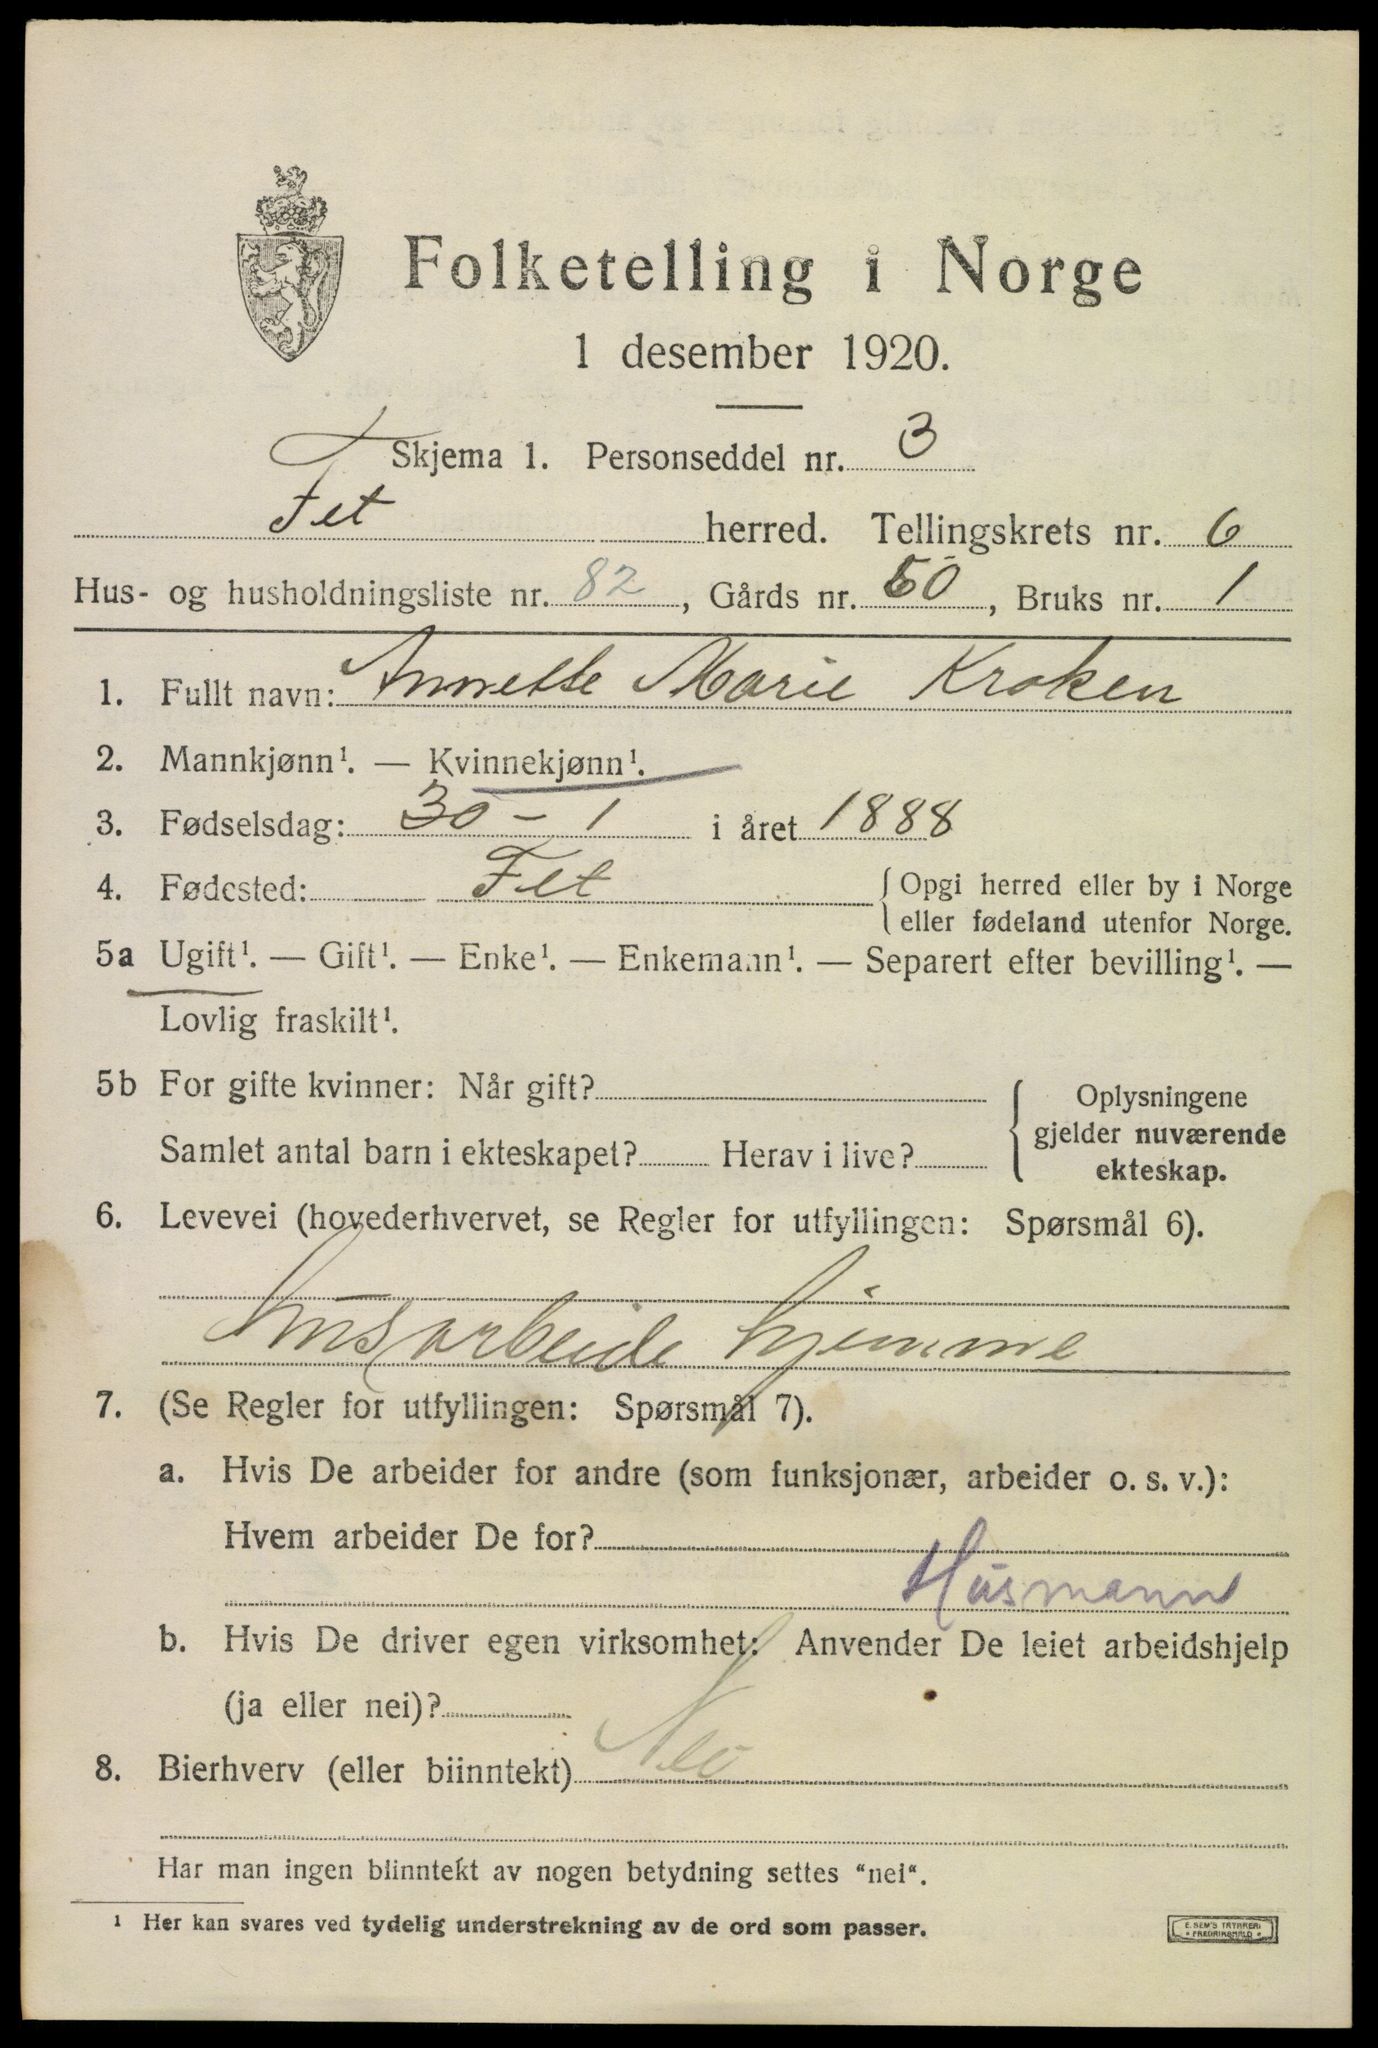 Folketelling i Norge
1 desember 1920.
Skjema 1. Personseddel nr. 3
Fet herred. Tellingskrets nr. 6
Hus- og husholdningsliste nr. 82, Gårds nr. 50, Bruks nr. 1
1. Fullt navn: Annette Marie Kroken
2. Mannkjønn¹. — Kvinnekjønn¹.
3. Fødselsdag: 30 - 1 i året 1888
4. Fødested: Fet { Opgi herred eller by i Norge
eller fødeland utenfor Norge.
5a Ugift¹. — Gift¹. — Enke¹. — Enkemann¹. — Separert efter bevilling¹. —
Lovlig fraskilt¹.
5b For gifte kvinner: Når gift? { Oplysningene
gjelder nuværende
Samlet antal barn i ekteskapet? Herav i live?
ekteskap.
6. Levevei (hovederhvervet, se Regler for utfyllingen: Spørsmål 6).
Husarbeide hjemme
7. (Se Regler for utfyllingen: Spørsmål 7).
a. Hvis De arbeider for andre (som funksjonær, arbeider o. s. v.):
Hvem arbeider De for?
Husmann
b. Hvis De driver egen virksomhet: Anvender De leiet arbeidshjelp
(ja eller nei)?
8. Bierhverv (eller biinntekt) Nei
Har man ingen biinntekt av nogen betydning settes “nei“.
¹ Her kan svares ved tydelig understrekning av de ord som passer.
E. SEM'S TRYKKERI
FREDRIKSHALD